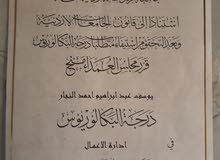 استنادا الى قانون الجامعات الاردنية
وبعد التحقق من استيفاء متطلبات درجة البكالوريوس
قرر مجلس العمداء منح
يوسف عبد ابراهيم احمد النجار
درجة البكالوريوس
في
ادارة الاعمال